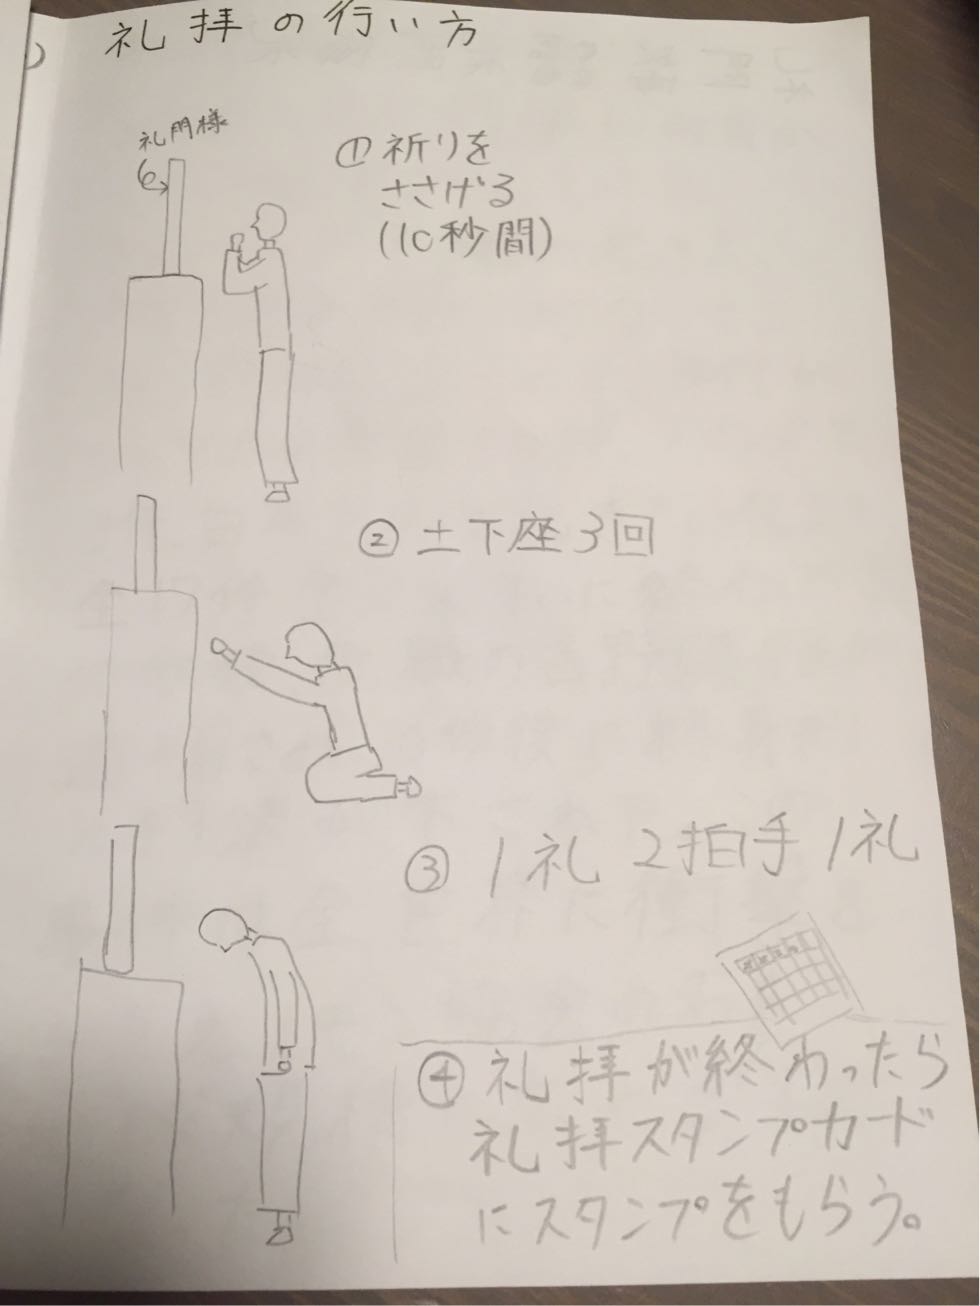 礼拝の行い方
礼門様
① 祈りを
ささげる
(10秒間)
② 土下座3回
③ 1礼 2拍手 1礼
④ 礼拝が終わったら
礼拝スタンプカード
にスタンプをもらう。